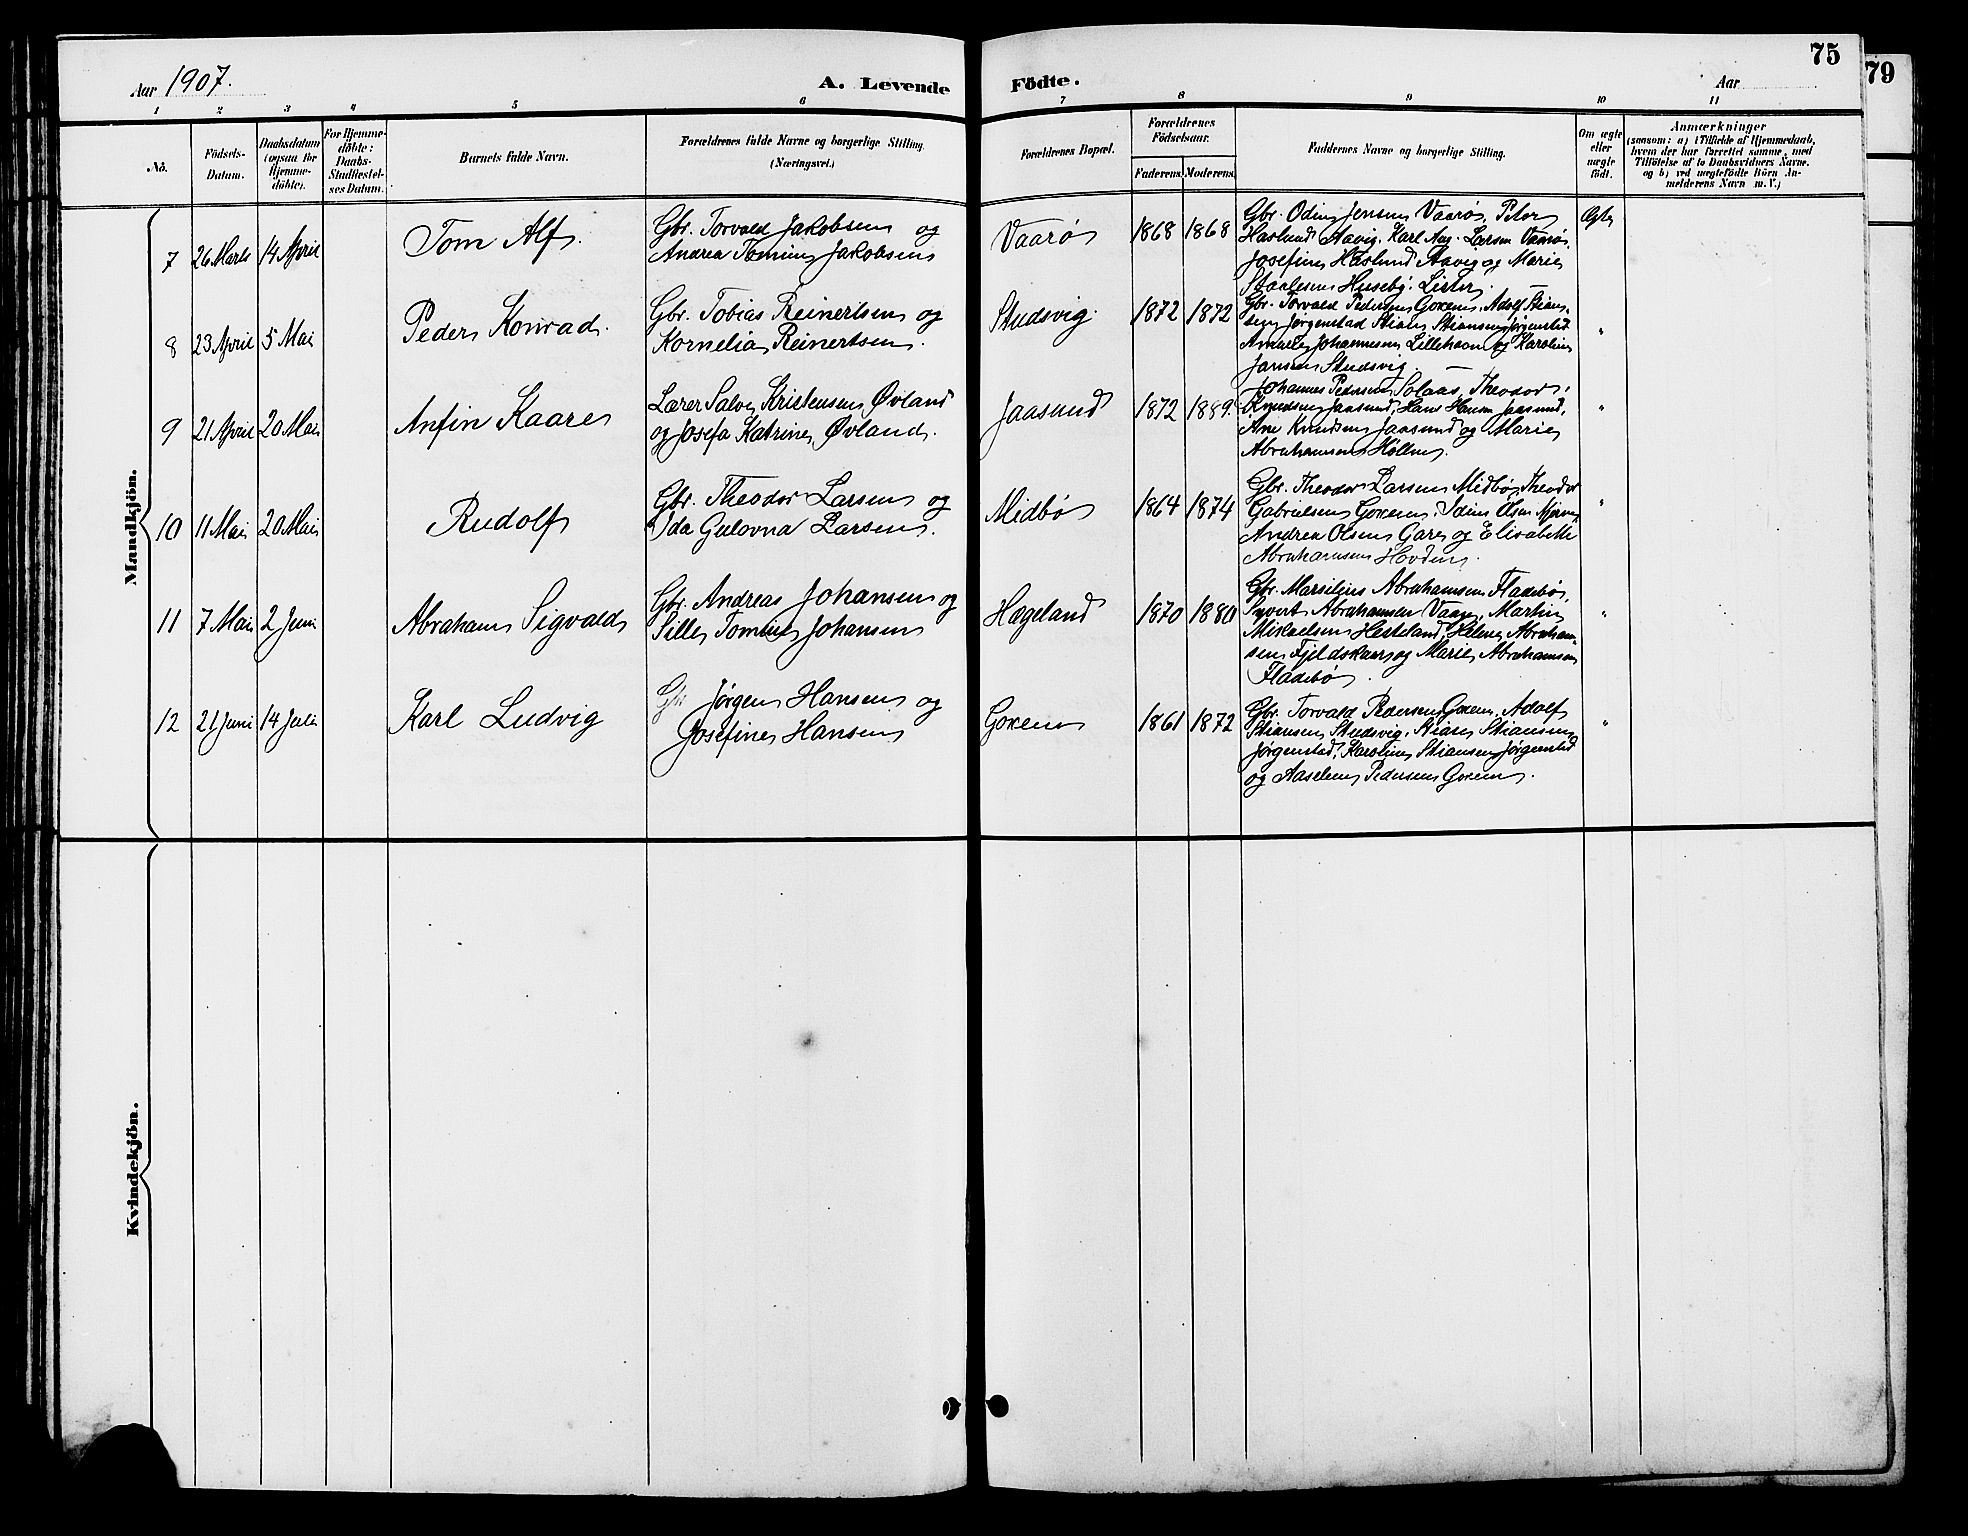 Aar 1907.
A. Levende Födte.
Aar
75
79
1 2 3 4 5 6 7 8 9 10 11
No.
Födsels-
Datum.
Daabsdatum
(ogsaa for
Hjemme-
döbte).
For Hjemme-
döbte:
Daabs-
Stadfæstel-
ses Datum.
Barnets fulde Navn.
Forældrenes fulde Navne og borgerlige Stilling.
(Næringsvei.)
Forældrenes Bopæl.
Forældrenes
Födselsaar.
Faderens. Moderens.
Faddernes Navne og borgerlige Stilling.
Om ægte
eller
uægte
födt.
Anmærkninger
(saasom: a) i Tilfælde af Hjemmedaab,
hvem der har forrettet samme, med
Tilföielse af to Daabsvidners Navne.
og b) ved uægtefödte Börn An-
melderens Navn m. V.)
Mandkjön.
7 26 Marts 14 April Tom Alf.
Gbr. Torvald Jakobsen og
Andrea Tomine Jakobsen
Vaarø 1868 1868
Gbr. Odin Jensen Vaarø, Peter
Haslund Aavig. Karl Aug. Larsen Vaarø.
Josefine Haslund Aavig og Marie
Staalesen Huseby. Lister.
Ægte
8 23 April 5 Mai Peder Konrad.
Gbr. Tobias Reinertsen og
Kornelia Reinertsen.
Studsvig. 1872 1872
Gbr. Torvald Pedersen Goxem. Adolf Stian-
sen Jørgenstad Stian Stiansen Jørgenstad
Amalie Johannesen Lillehavn og Karoline
Jansen Studsvig.
"
9 21 April 20 Mai Anfin Kaare
Lærer Salve Kristensen Øvland
og Josefa Katrine Øvland.
Jaasund 1872 1889.
Johannes Pedersen Solaas, Theodor
Knudsen Jaasund, Hans Hansen Jaasund,
Ane Knudsen Jaasund og Marie
Abrahamsen Höllen.
"
10 11 Mai 20 Mai Rudolf
Gbr. Theodor Larsen og
Ida Gulovna Larsen.
Midbø 1864 1874
Gbr. Theodor Larsen Midbø, Theodor
Gabrielsen Goxem. Olsen
Andrea Olsen Gare og Elisabeth
Abrahamsen Hovden.
"
11 7 Mai 2 Juni Abraham Sigvald
Gbr. Andreas Johansen og
Sille Tomine Johansen
Hægeland 1870 1880
Gbr. Marselius Abrahamsen Fladebø,
Syvert Abrahamsen Vaage, Martin
Mikaelsen Hesteland, Helene Abraham-
sen Fjeldskaar og Marie Abrahamsen
Fladebø.
"
12 21 Juni 14 Juli Karl Ludvig
Gbr Jørgen Hansen og
Josefine Hansen
Goxem 1861 1872
Gbr. Torvald Pedersen Goxem. Adolf
Stiansen Studsvig. Stian Stiansen
Jørgenstad, Karoline Stiansen Jørgenstad
og Aaselene Pedersen Goxem.
"
Kvindekjön.